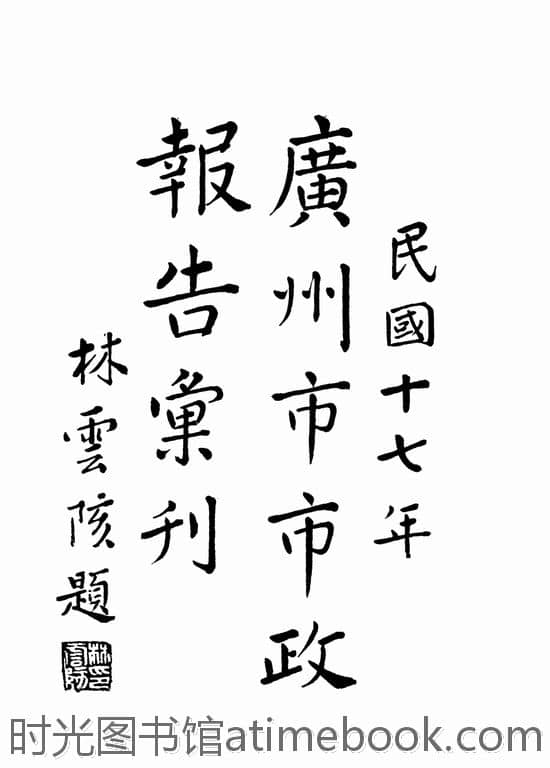 民國十七年
廣州市市政
報告彙刊
林雲陔題
时光图书馆atimebook.com